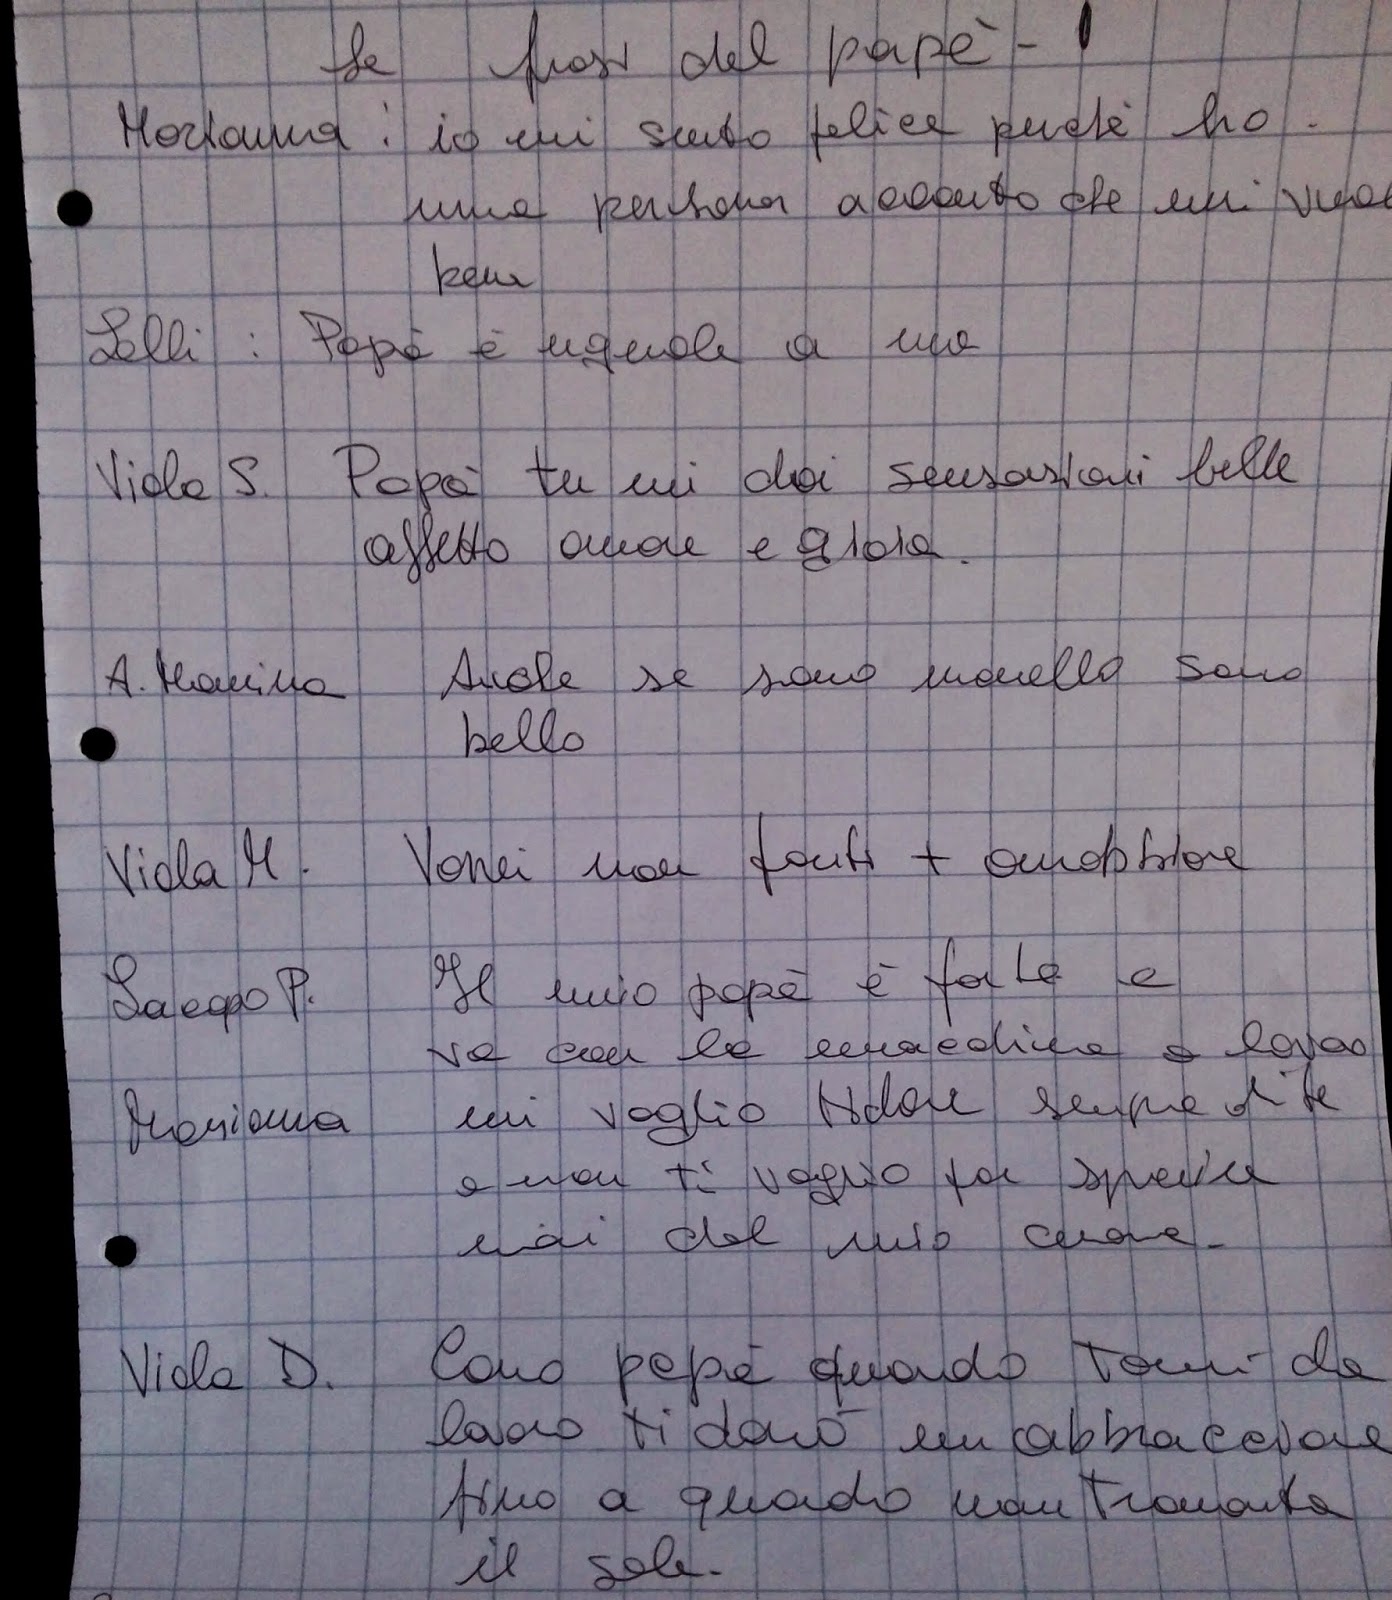 Le frasi del papà - 1
Marianna : io mi sento felice perché ho
una persona accanto che mi vuole
bene
Lelli : Papà è uguale a me
Viola S. Papà tu mi dai sensazioni belle
affetto amore e gioia.
A. Manina Anche se sono monello sono
bello
Viola M. Vorrei non farti + arrabbiare
Iacopo P. Il mio papà è forte e
va con la macchina a lavoro
Marianna mi voglio fidare sempre di te
e non ti voglio far sparire
mai dal mio cuore.
Viola D. Caro papà quando torni da
lavoro ti darò un abbraccione
fino a quando non tramonta
il sole.